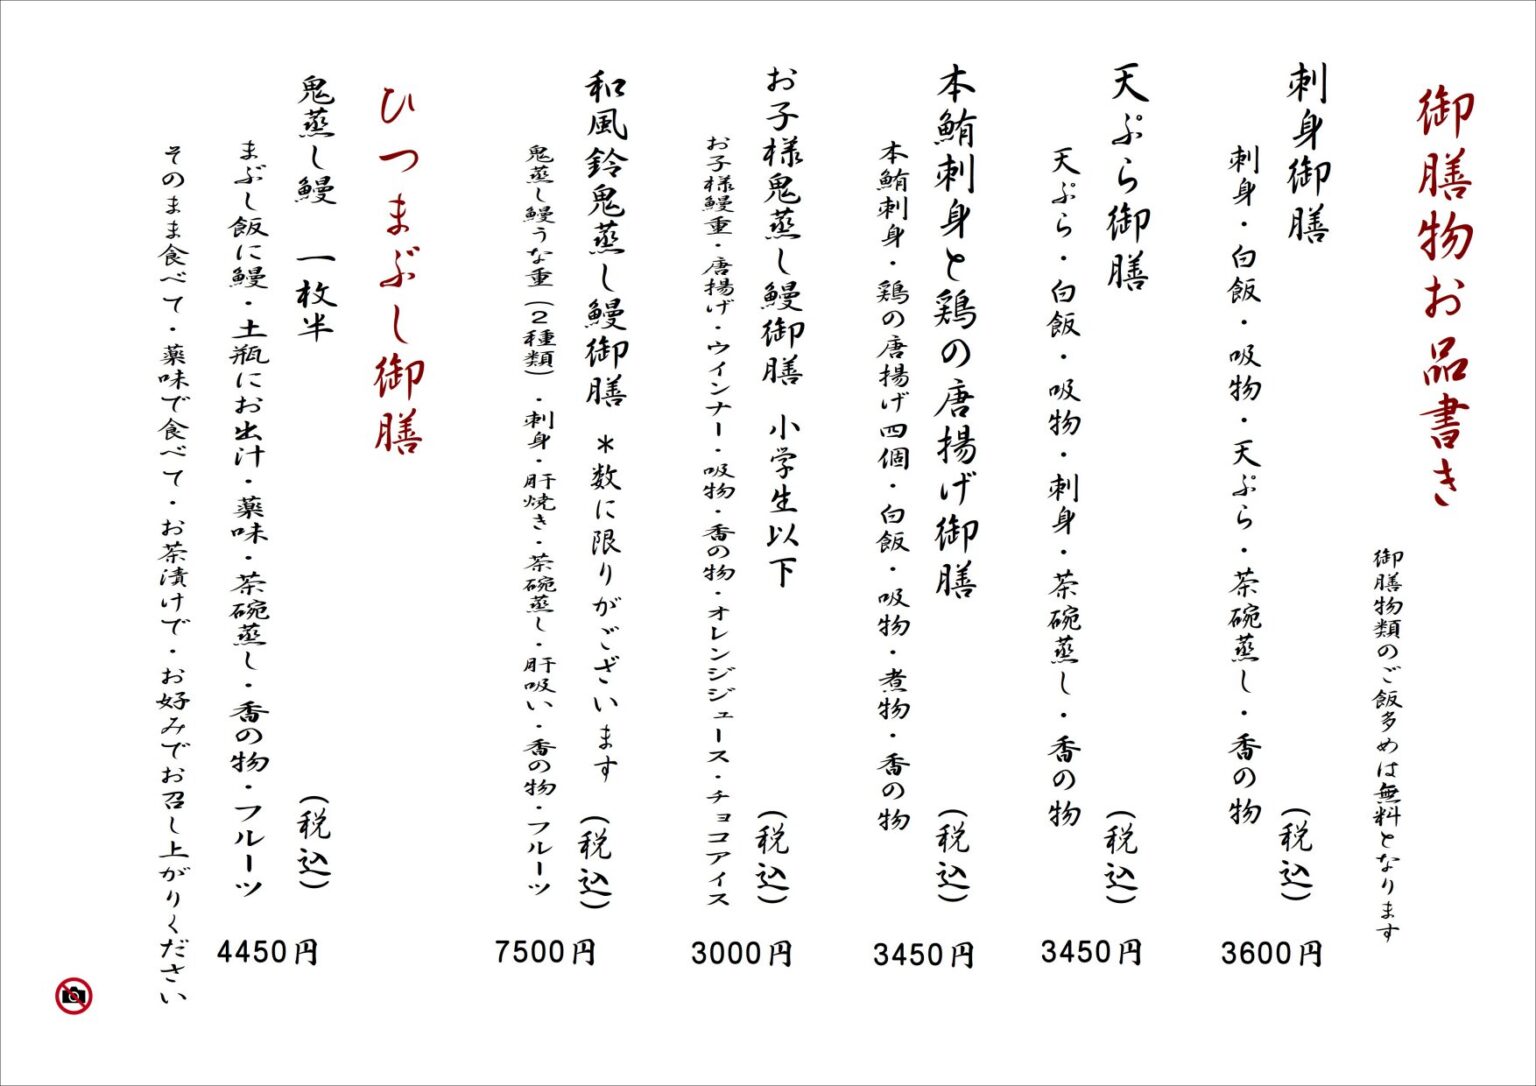 御膳物お品書き
御膳物類のご飯多めは無料となります
刺身御膳 (税込) 3600円
刺身・白飯・吸物・天ぷら・茶碗蒸し・香の物
天ぷら御膳 (税込) 3450円
天ぷら・白飯・吸物・刺身・茶碗蒸し・香の物
本鮪刺身と鶏の唐揚げ御膳 (税込) 3450円
本鮪刺身・鶏の唐揚げ四個・白飯・吸物・煮物・香の物
お子様鬼蒸し鰻御膳 小学生以下 (税込) 3000円
お子様鰻重・唐揚げ・ウインナー・吸物・香の物・オレンジジュース・チョコアイス
和風鈴鬼蒸し鰻御膳 *数に限りがございます (税込) 7500円
鬼蒸し鰻うな重(2種類)・刺身・肝焼き・茶碗蒸し・肝吸い・香の物・フルーツ
ひつまぶし御膳
鬼蒸し鰻 一枚半 (税込) 4450円
まぶし飯に鰻・土瓶にお出汁・薬味・茶碗蒸し・香の物・フルーツ
そのまま食べて・薬味で食べて・お茶漬けで・お好みでお召し上がりください